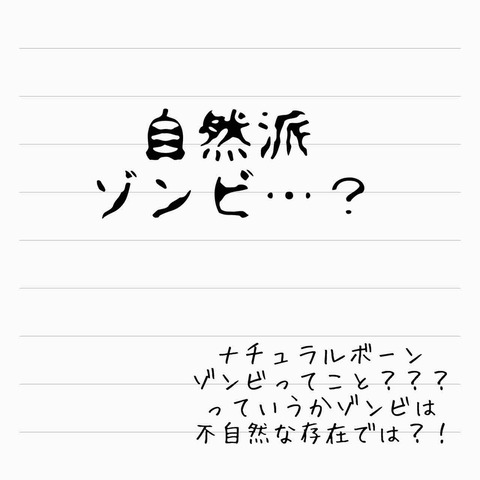 自然派
ゾンビ…？
ナチュラルボーン
ゾンビってこと？？？
っていうかゾンビは
不自然な存在では？！